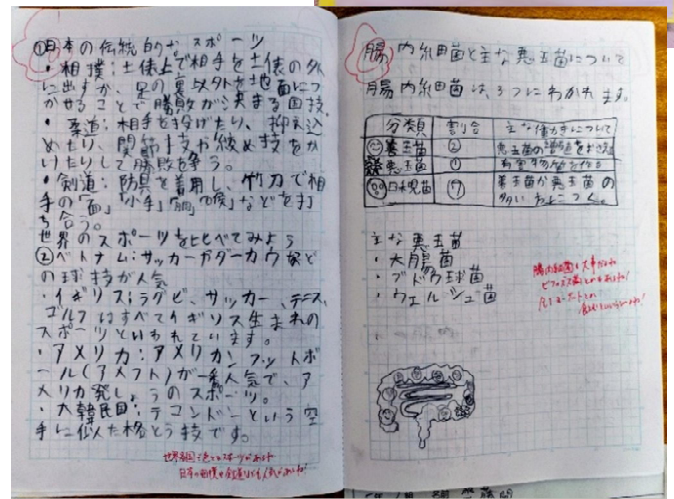 ①日本の伝統的なスポーツ
・相撲：土俵上で相手を土俵の外
に出すか、足の裏以外を地面につ
かせることで勝敗が決まる国技。
・柔道：相手を投げたり、抑え込
めたり、関節技や絞め技をか
いたりして勝敗を争う。
・剣道：防具を着用し、竹刀で相
手の「面」「小手」「胴」「喉」などを打
ち合う。
世界のスポーツを比べてみよう
②ベトナム：サッカーやダーカウなど
の球技が人気
・イギリス：ラグビー、サッカー、テニス、
ゴルフはすべてイギリス生まれの
スポーツといわれています。
・アメリカ：アメリカンフットボ
ール(アメフト)が一番人気で、ア
メリカ発しょうのスポーツ。
・大韓民国：テコンドーという空
手に似た格とう技です。
腸内細菌と主な悪玉菌について
腸内細菌は、3つにわかれます。
分類 割合 主な働きについて
善玉菌 ② 悪玉菌の
悪玉菌 ① 有害物質を作る
日和見菌 ⑦ 善玉菌か悪玉菌の
多い
主な悪玉菌
・大腸菌
・ブドウ球菌
・ウェルシュ菌